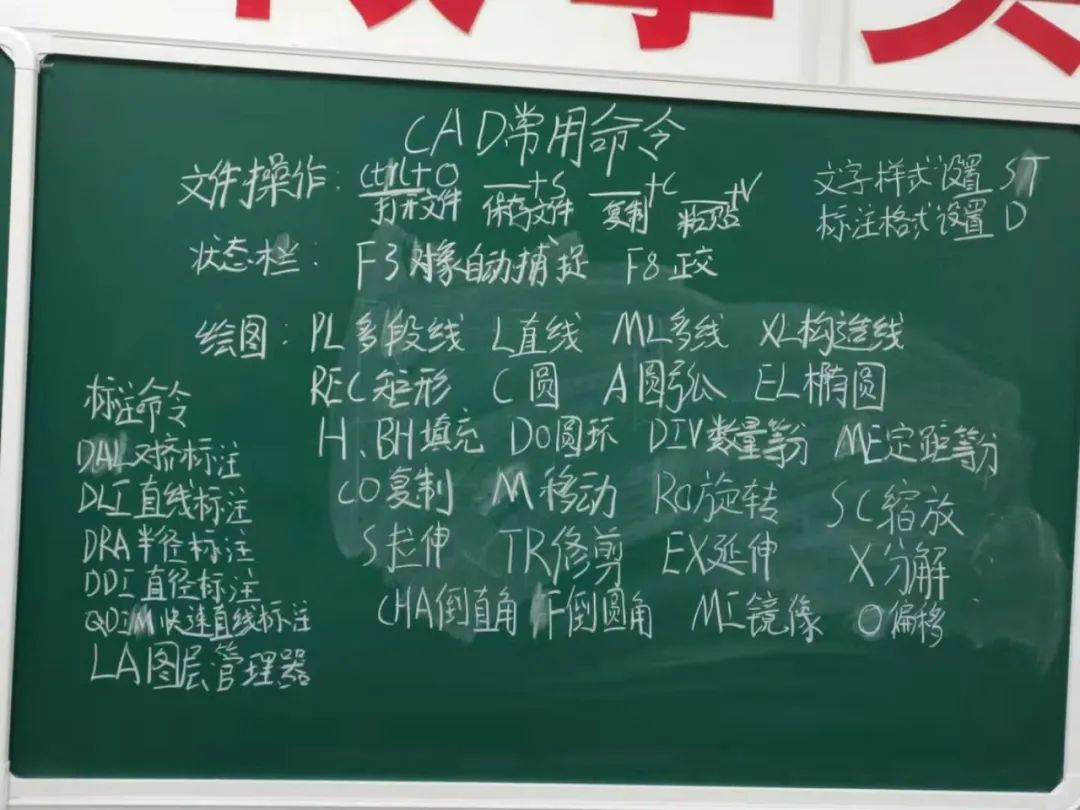 CAD常用命令
文件操作: Ctrl+O 打开文件 —+S 保存文件 —+C 复制 —+V 粘贴
文字样式设置 ST
标注格式设置 D
状态栏: F3对象自动捕捉 F8正交
绘图: PL多段线 L直线 ML多线 XL构造线
REC矩形 C圆 A圆弧 EL椭圆
H、BH填充 DO圆环 DIV数量等分 ME定距等分
CO复制 M移动 RO旋转 SC缩放
S拉伸 TR修剪 EX延伸 X分解
CHA倒直角 F倒圆角 MI镜像 O偏移
标注命令
DAL对挤标注
DLI直线标注
DRA半径标注
DDI直径标注
QDIM快速直线标注
LA图层管理器